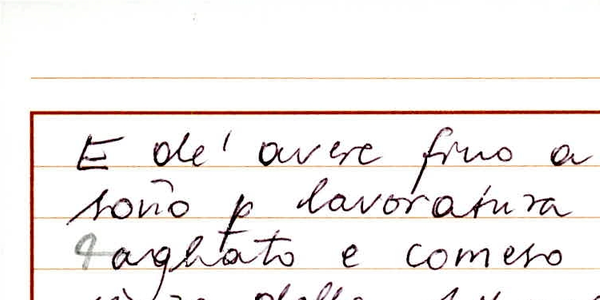 E de' avere fino a
sono p lavoratura
tagliato e comeso
della